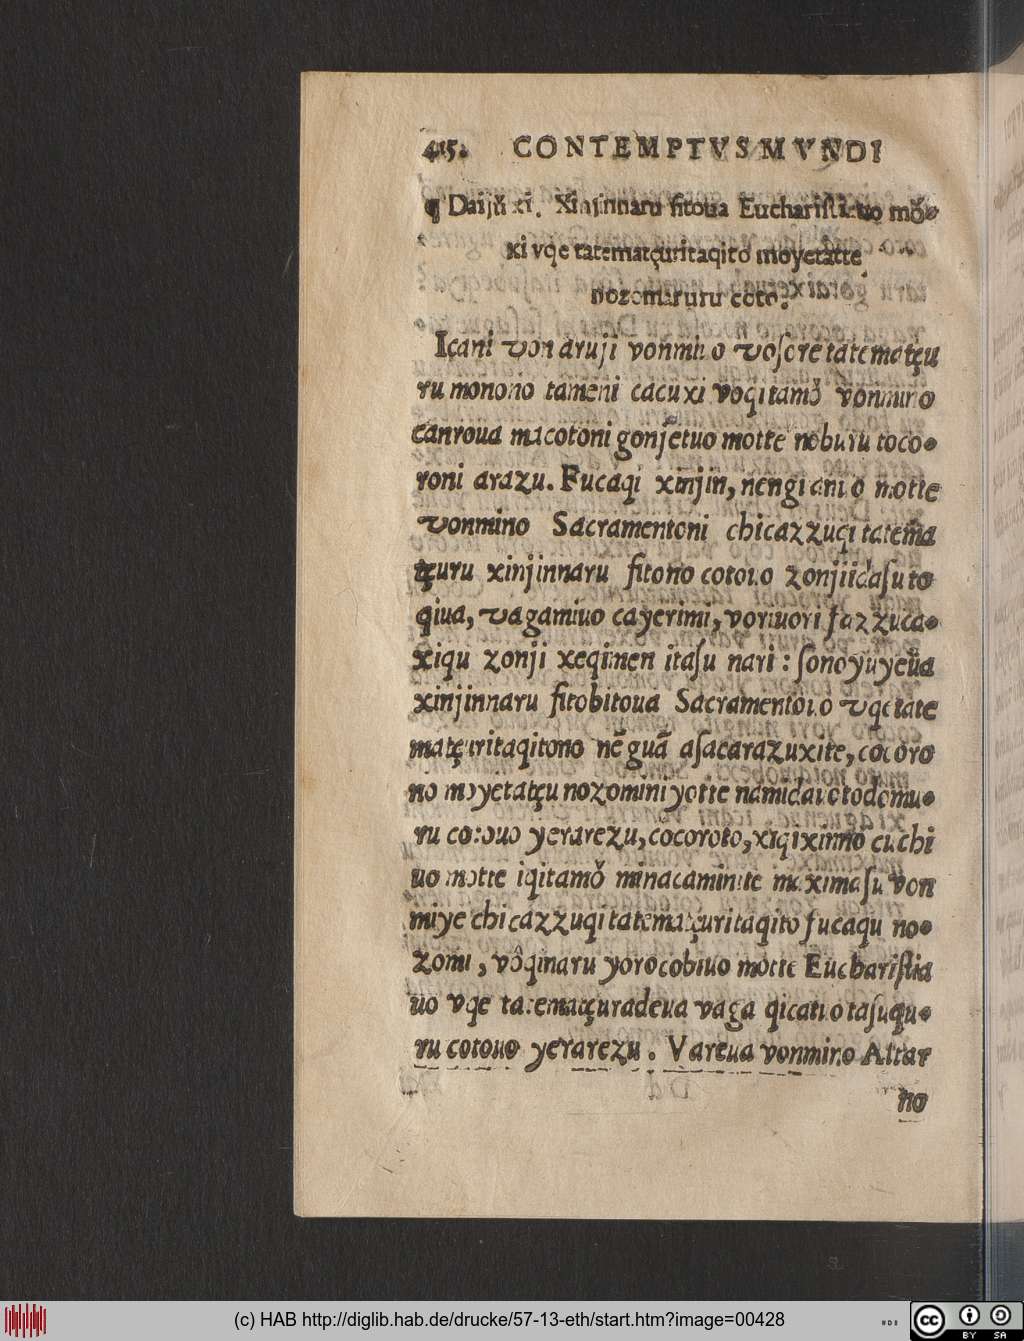 415. CONTEMPTVS MVNDI
¶ Daijŭ xi. Xinjinnaru fitoua Euchariſtiauo mŏ-
xi vqe tatematçuritaqito moyetatte
nozomaruru coto.
Icani von aruji vonmi uo voſore tatematçu
ru monono tameni cacuxi voqitamŏ vonmino
canroua macotoni gonjetuo motte noburu toco-
roni arazu. Fucaqi xinjin, nengiani o motte
vonmino Sacramentoni chicazzuqi tatema
tçuru xinjinnaru fitono cotouo zonjiidaſu to
qiua, vagamiuo cayerimi, vonuori fazzuca-
xiqu zonji xeqimen itaſu nari : ſonoyuyeua
xinjinnaru fitobitoua Sacramentouo vqe tate
matçuritaqitono nẽguã aſacarazuxite, cocoro
no moyetatçu nozomini yotte namidauo todomu-
ru cotouo yerarezu, cocoroto, xiqixinno cuchi
uo motte iqitamŏ minacaminite maximaſu von
miye chicazzuqi tatematçuritaqito fucaqu no-
zomi, vôqinaru yorocobiuo motte Euchariſtia
uo vqe tatematçuradeua vaga qicatuo taſuqu-
ru cotouo yerarezu. Vareua vonmino Altar
no
(c) HAB http://diglib.hab.de/drucke/57-13-eth/start.htm?image=00428
cc BY SA